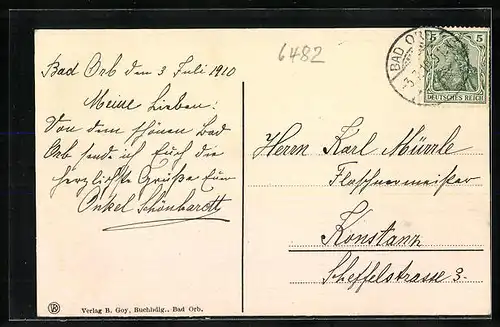 6482
BAD ORB
5 5
DEUTSCHES REICH
Bad Orb den 3 Juli 1910
Meine Lieben!
Von dem schönen Bad
Orb sende ich Euch die
herzlichste Grüße Euer
Onkel Schönhardt
Herrn Karl Mürrle
Flaschnermeister
Konstanz
Scheffelstrasse 3.
Verlag B. Goy, Buchhdlg., Bad Orb.